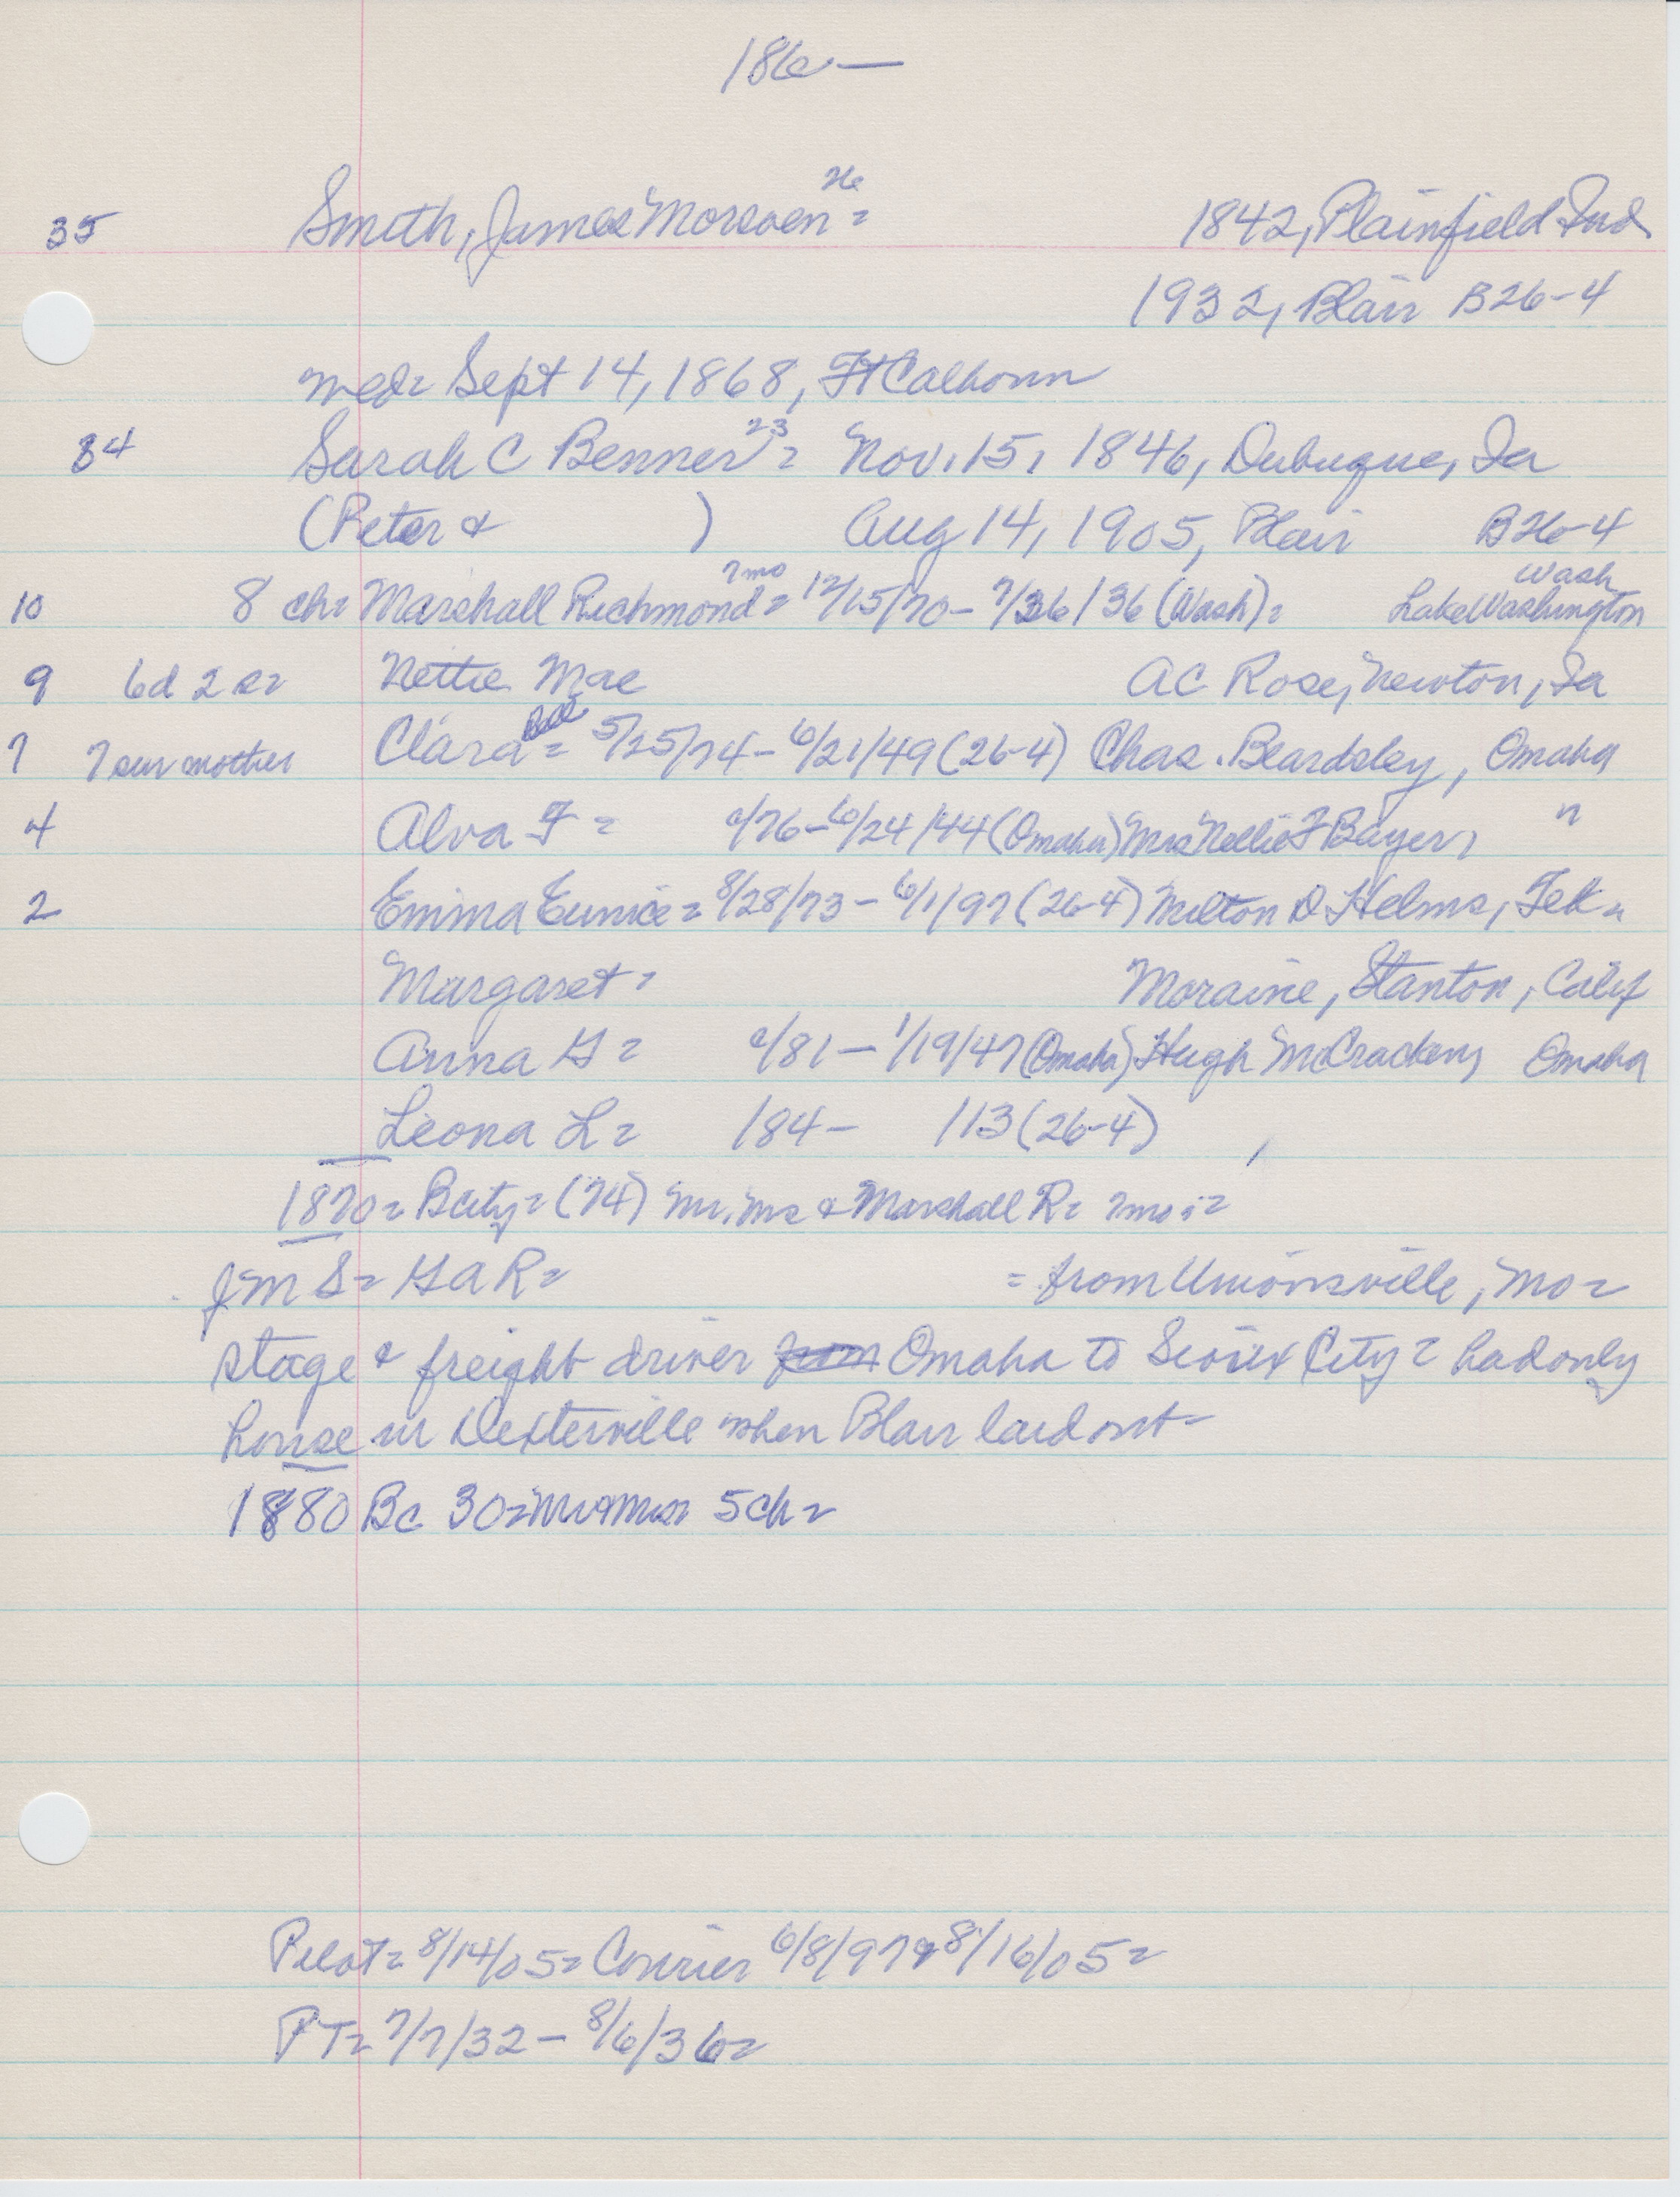 186-
26
35 Smith, James Morsven = 1842, Plainfield Ind
1932, Blair B26-4
med= Sept 14, 1868, Ft Calhoun
23
34 Sarah C Benner = Nov. 15, 1846, Dubuque, Ia
(Peter & ) Aug 14, 1905, Blair B26-4
7mo Wash
10 8 ch= Marshall Richmond = 12/15/70- 7/36/36 (Wash)= Lake Washington
9 6d 2s= Nettie Mae AC Rose, Newton, Ia
7 7 sur mother Clara Bell = 5/25/74- 6/21/49 (26-4) Chas. Beardsley, Omaha
4 Alva F = c/76-6/24/44 (Omaha) Mrs Nellie F Bayer, "
2 Emma Eunice = 8/28/73 - 6/1/97 (26-4) Milton D Helms, Tek=
Margaret = Moraine, Stanton, Calif
Anna G = c/81- 1/19/47 (Omaha) Hugh McCracken, Omaha
Leona L = 184- 113 (26-4) ,
1870= Bcity= (74) Mr. Mrs & Marshall R= 7mo.=
JM S= GAR= = from Unionsville, Mo=
stage & freight driver from Omaha to Sioux City = had only
house in Dexterville when Blair laid out=
1880 Bc 30= Mr & Mrs 5ch=
Pilot= 8/14/05= Courier 6/8/97 & 8/16/05=
PT= 7/7/32- 8/6/36=